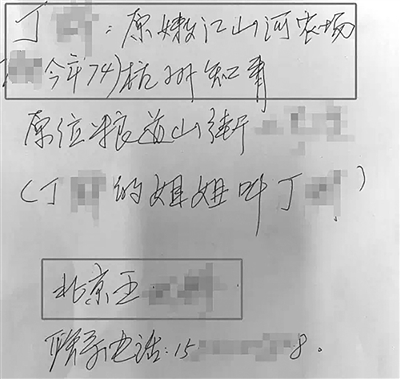 丁 : 原嫩江山河农场
今年74)杭州知青
原住粮道山街
(丁 的姐姐叫丁 )
北京王
联系电话:15 8。